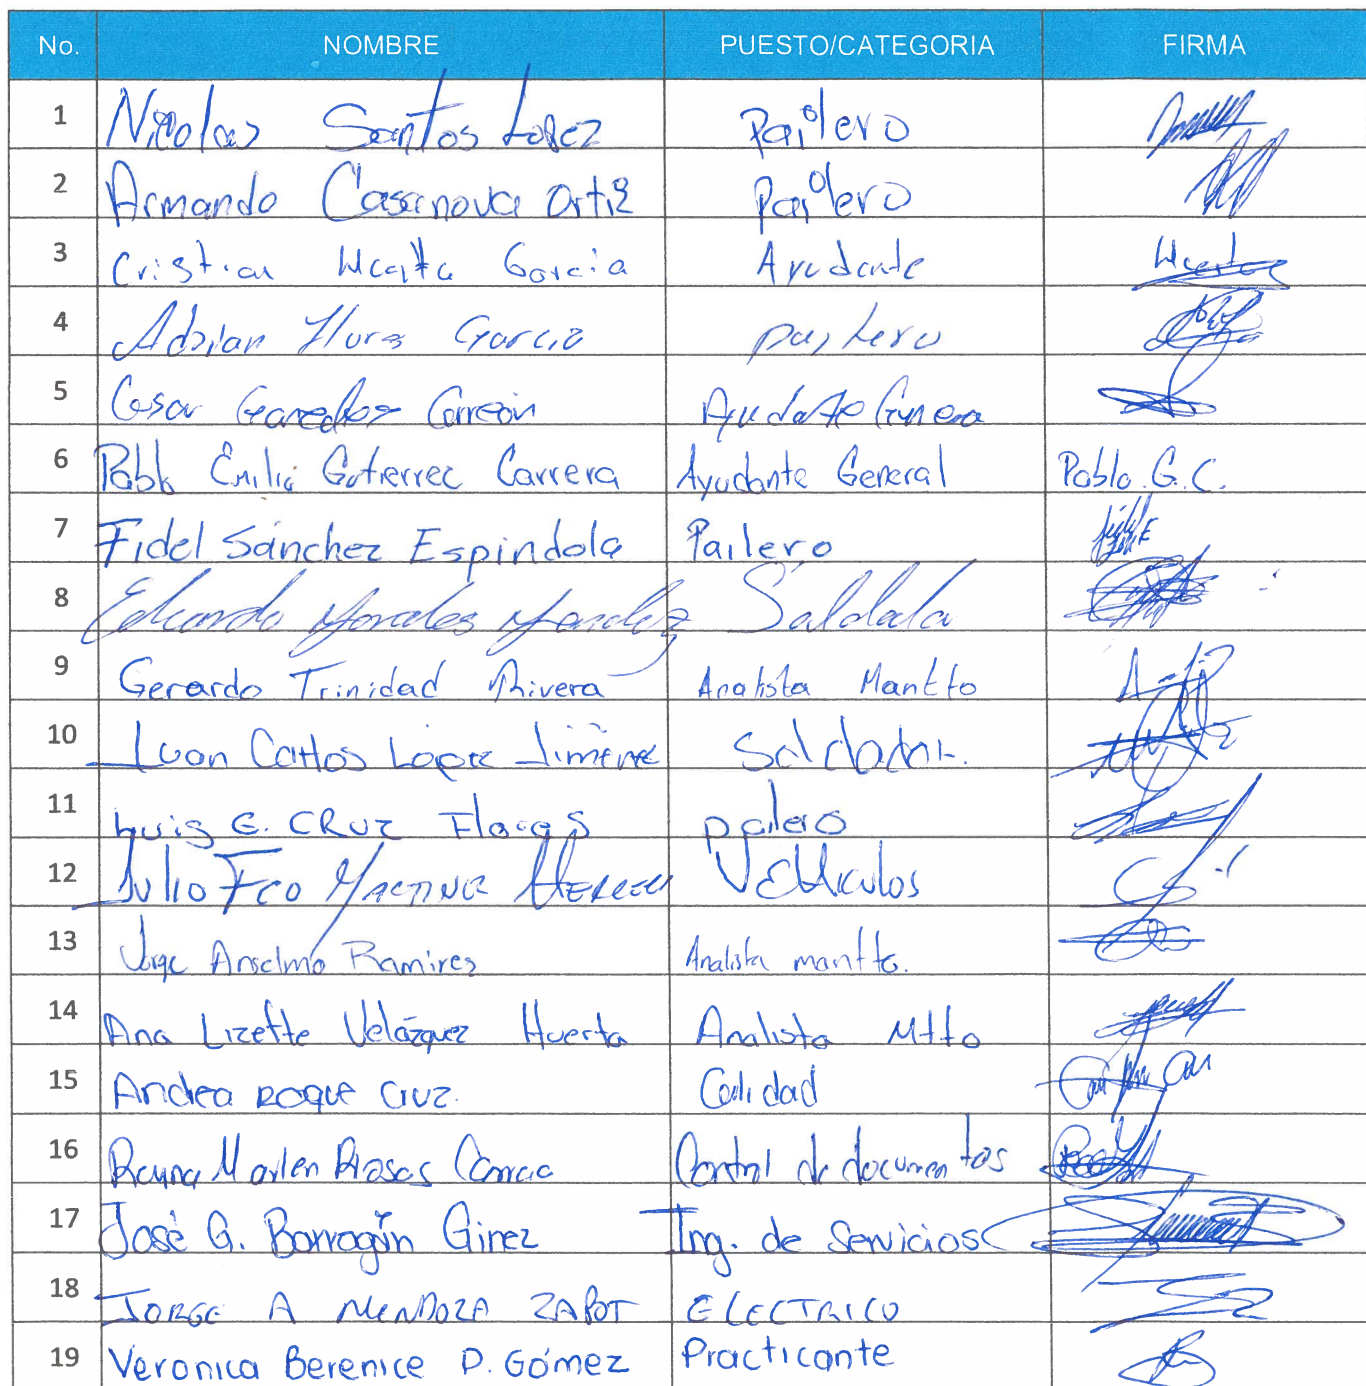 No. NOMBRE PUESTO/CATEGORIA FIRMA
1 Nicolas Santos Lopez Pailero
2 Armando Casanova Ortiz Pailero
3 Cristian Garcia Ayudante
4 Adrian Garcia pailero
5 Cesar Carreón Ayudante General
6 Pablo Emilio Gutierrez Carrera Ayudante General Pablo. G. C.
7 Fidel Sánchez Espindola Pailero
8 Eduardo Morales
9 Gerardo Trinidad Rivera Analista Mantto
10 Juan Carlos López Jiménez Soldador.
11 Luis E. CRUZ Flores pailero
12 Julio Fco
13 Jorge Anselmo Ramirez Analista mantto.
14 Ana Lizette Velázquez Huerta Analista Mtto
15 Andrea ROQUE Cruz. Calidad
16 Reyna Marlen Rosas Control de documentos
17 José G. Barragán Ginez Ing. de Servicios
18 JORGE A MENDOZA ZAPOT ELECTRICO
19 Veronica Berenice D. Gómez Practicante